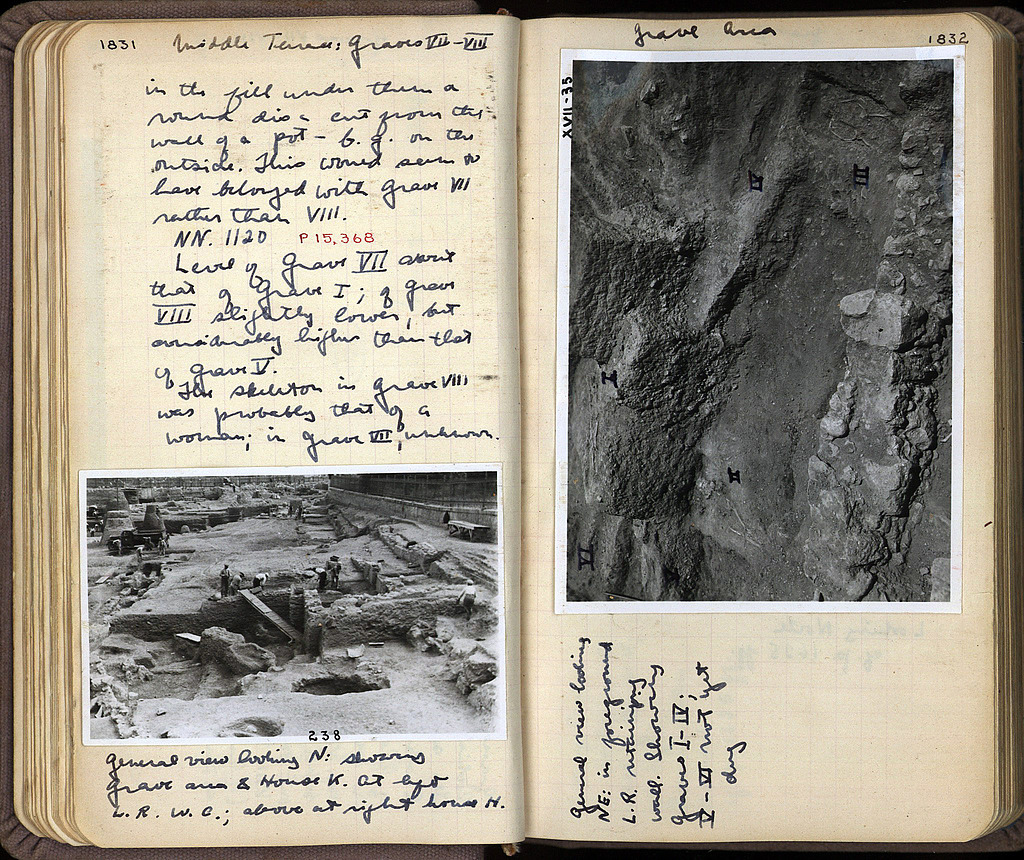 1831
Middle Terrace: Graves VII-VIII
in the fill under them a
round disc cut from the
wall of a pot - b.g. on the
outside. This would seem to
have belonged with grave VII
rather than VIII.
NN. 1120 P 15,368
Level of Grave VII above
that of Grave I; of grave
VIII slightly lower, but
considerably higher than that
of grave V.
The skeleton in grave VIII
was probably that of a
woman; in grave VII, unknown.
238
General view looking N: showing
grave area & House K. At left
L. R. W. C.; above at right house H.
Grave Area
1832
XVII-35
IV
III
I
II
VI
General view looking
NE: in foreground
L.R. retaining
wall. Showing
graves I-IV;
V-VI not yet
dug